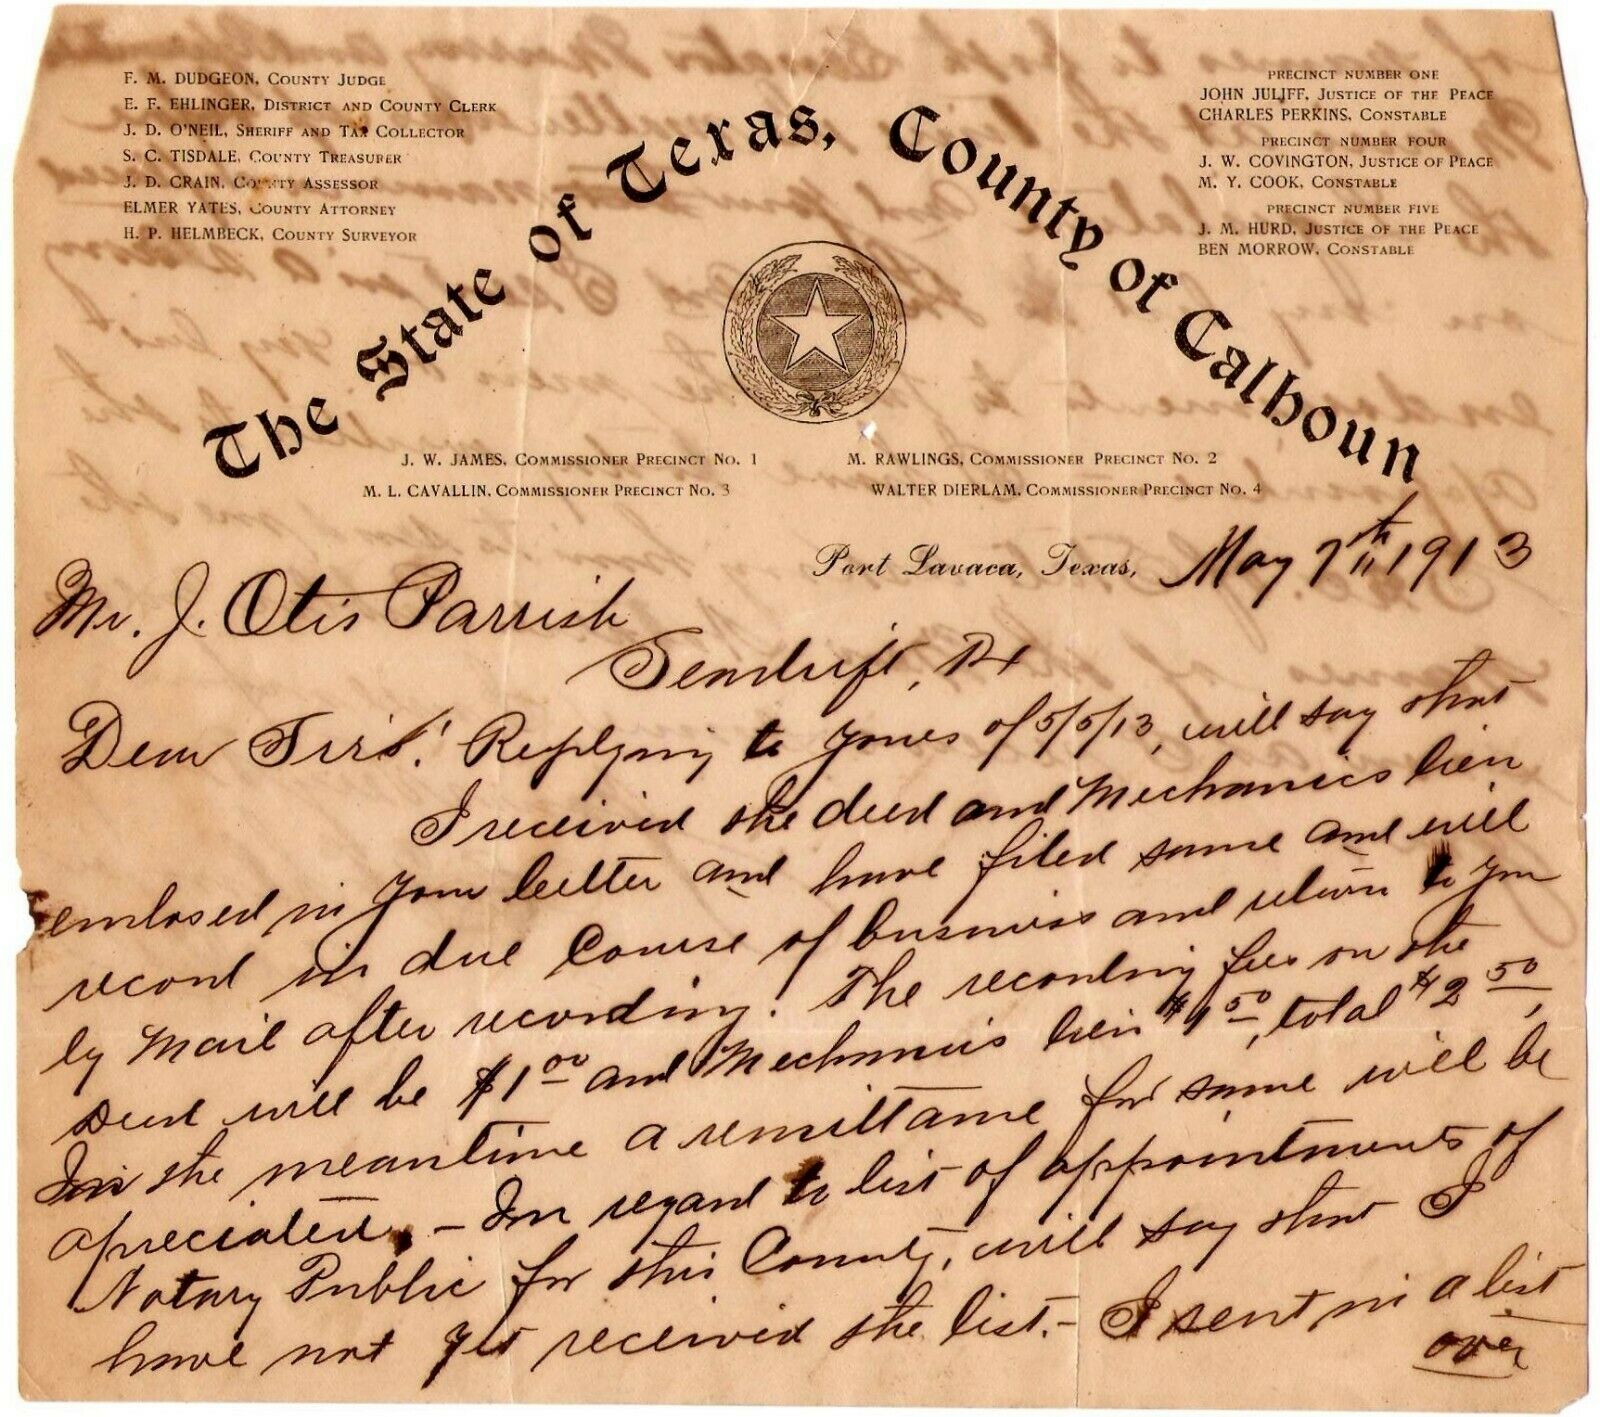 F. M. DUDGEON, COUNTY JUDGE
E. F. EHLINGER, DISTRICT AND COUNTY CLERK
J. D. O'NEIL, SHERIFF AND TAX COLLECTOR
S. C. TISDALE, COUNTY TREASURER
J. D. CRAIN, COUNTY ASSESSOR
ELMER YATES, COUNTY ATTORNEY
H. P. HELMBECK, COUNTY SURVEYOR
PRECINCT NUMBER ONE
JOHN JULIFF, JUSTICE OF THE PEACE
CHARLES PERKINS, CONSTABLE
PRECINCT NUMBER FOUR
J. W. COVINGTON, JUSTICE OF PEACE
M. Y. COOK, CONSTABLE
PRECINCT NUMBER FIVE
J. M. HURD, JUSTICE OF THE PEACE
BEN MORROW, CONSTABLE
The State of Texas, County of Calhoun
J. W. JAMES, COMMISSIONER PRECINCT NO. 1
M. RAWLINGS, COMMISSIONER PRECINCT NO. 2
M. L. CAVALLIN, COMMISSIONER PRECINCT NO. 3
WALTER DIERLAM, COMMISSIONER PRECINCT NO. 4
Port Lavaca, Texas, May 7th 1913
Mr. J. Otis Parrish
Seadrift, Tx
Dear Sir: Replying to yours of 5/5/13, will say that
I received the deed and Mechanics lien
enclosed in your letter and have filed same and will
record in due course of business and return to you
by mail after recording. The recording fees on the
Deed will be $1.00 and Mechanics lien $1.50, total $2.50,
In the meantime a remittance for same will be
apreciated, - In regard to list of appointments of
Notary Public for this County, will say that I
have not yet received the list. - I sent in a list
over